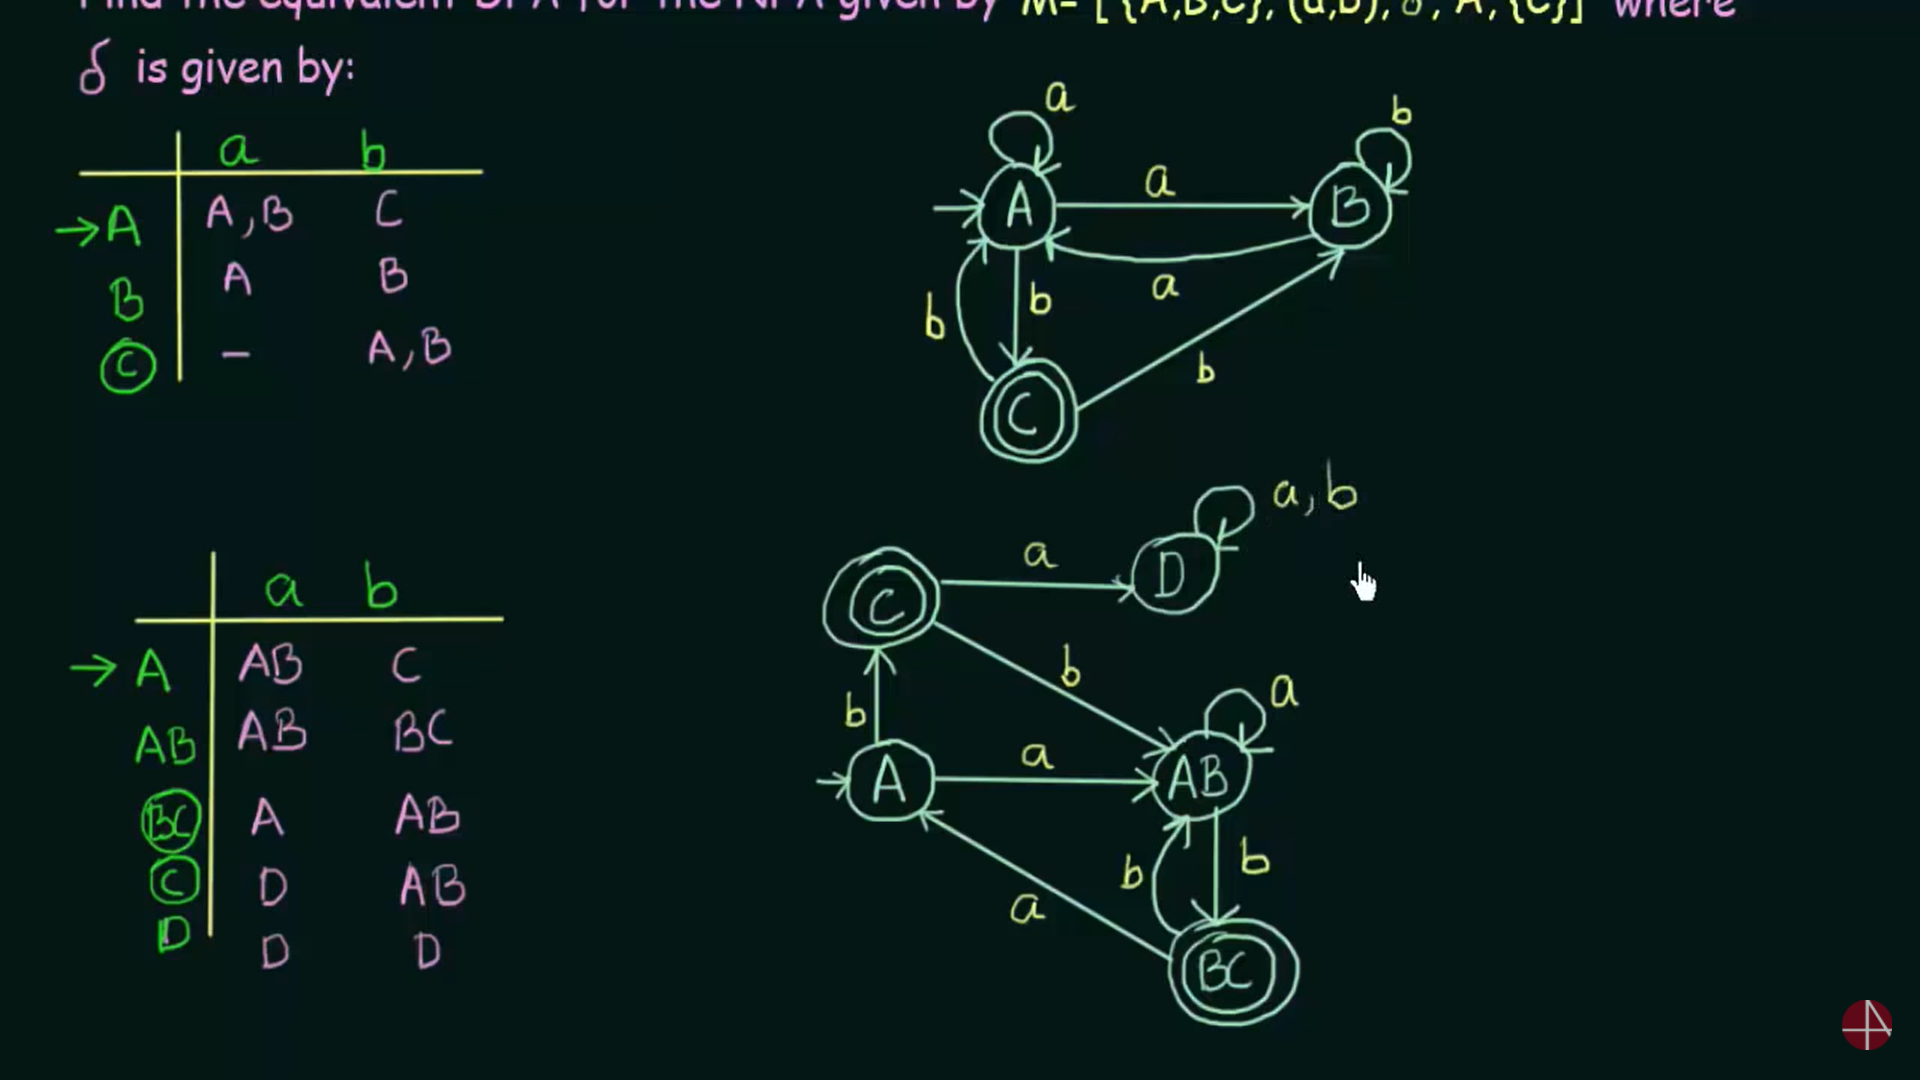 Find the equivalent DFA for the NFA given by M= [ {A,B,C}, (a,b), δ, A, {C}] where
δ is given by:
a b
→A A,B C
B A B
C – A,B
a
b
A
a
B
a
b
b
b
C
a b
→ A AB C
AB AB BC
BC A AB
C D AB
D D D
a,b
C
a
D
b
a
b
A
a
AB
b
b
a
BC